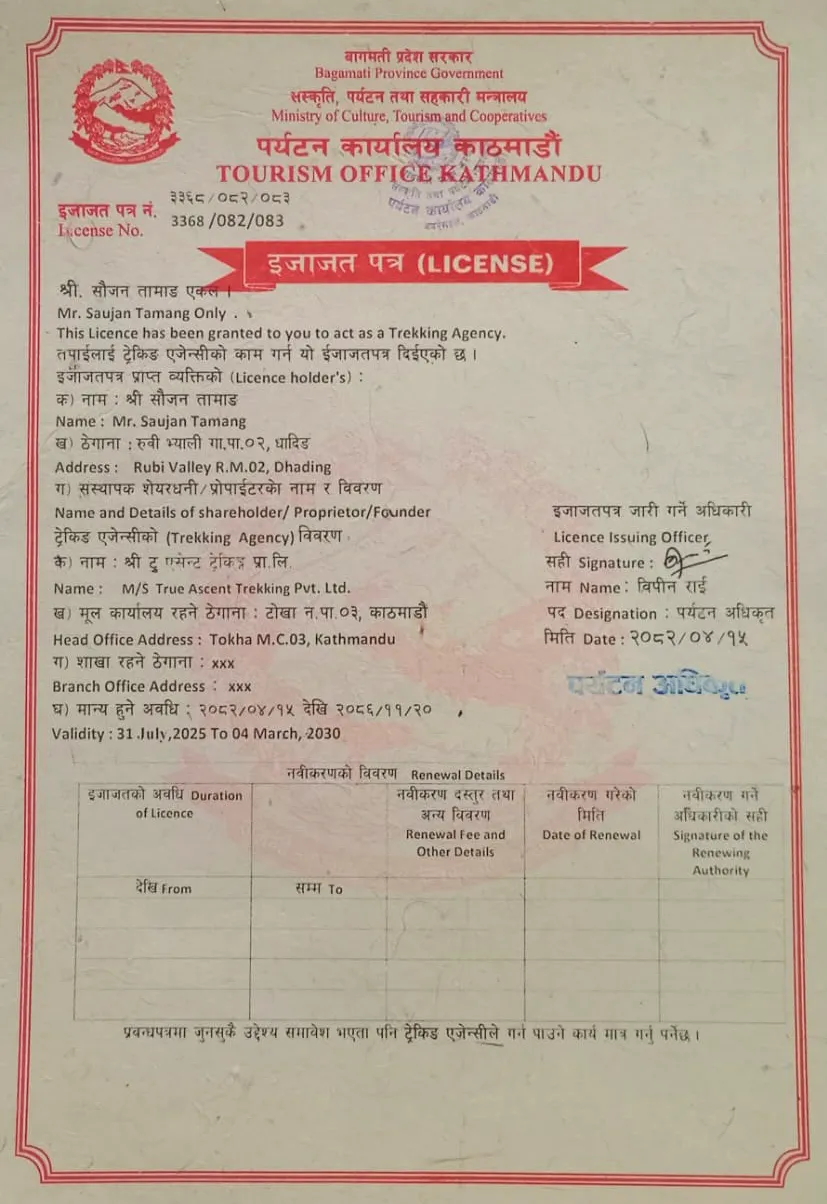 बागमती प्रदेश सरकार
Bagamati Province Government
संस्कृति, पर्यटन तथा सहकारी मन्त्रालय
Ministry of Culture, Tourism and Cooperatives
पर्यटन कार्यालय काठमाडौं
TOURISM OFFICE KATHMANDU
इजाजत पत्र नं. ३३६८/०८२/०८३
License No. 3368/082/083
पर्यटन कार्यालय
इजाजत पत्र (LICENSE)
श्री. सौजन तामाड एकल ।
Mr. Saujan Tamang Only .
This Licence has been granted to you to act as a Trekking Agency.
तपाईलाई ट्रेकिङ एजेन्सीको काम गर्न यो ईजाजतपत्र दिईएको छ ।
इजाजतपत्र प्राप्त व्यक्तिको (Licence holder's) :
क) नाम : श्री सौजन तामाड
Name : Mr. Saujan Tamang
ख) ठेगाना : रुवी भ्याली गा.पा.०२, धादिङ
Address : Rubi Valley R.M.02, Dhading
ग) संस्थापक शेयरधनी/प्रोपाईटरको नाम र विवरण
Name and Details of shareholder/ Proprietor/Founder
ट्रेकिङ एजेन्सीको (Trekking Agency) विवरण
क) नाम : श्री ट्रु एसेन्ट ट्रेकिङ्ग प्रा.लि.
Name : M/S True Ascent Trekking Pvt. Ltd.
ख) मूल कार्यालय रहने ठेगाना : टोखा न.पा.०३, काठमाडौं
Head Office Address : Tokha M.C.03, Kathmandu
ग) शाखा रहने ठेगाना : xxx
Branch Office Address : xxx
घ) मान्य हुने अवधि : २०८२/०४/१५ देखि २०८६/११/२०
Validity : 31 July,2025 To 04 March, 2030
इजाजतपत्र जारी गर्ने अधिकारी
Licence Issuing Officer,
सही Signature :
नाम Name : विपीन राई
पद Designation : पर्यटन अधिकृत
मिति Date : २०८२/०४/१५
पर्यटन अधिकृत
नवीकरणको विवरण Renewal Details
इजाजतको अवधि Duration of Licence
नवीकरण दस्तुर तथा अन्य विवरण
Renewal Fee and Other Details
नवीकरण गरेको मिति
Date of Renewal
नवीकरण गर्ने अधिकारीको सही
Signature of the Renewing Authority
देखि From
सम्म To
प्रबन्धपत्रमा जुनसुकै उद्देश्य समावेश भएता पनि ट्रेकिङ एजेन्सीले गर्न पाउने कार्य मात्र गर्नु पर्नेछ ।